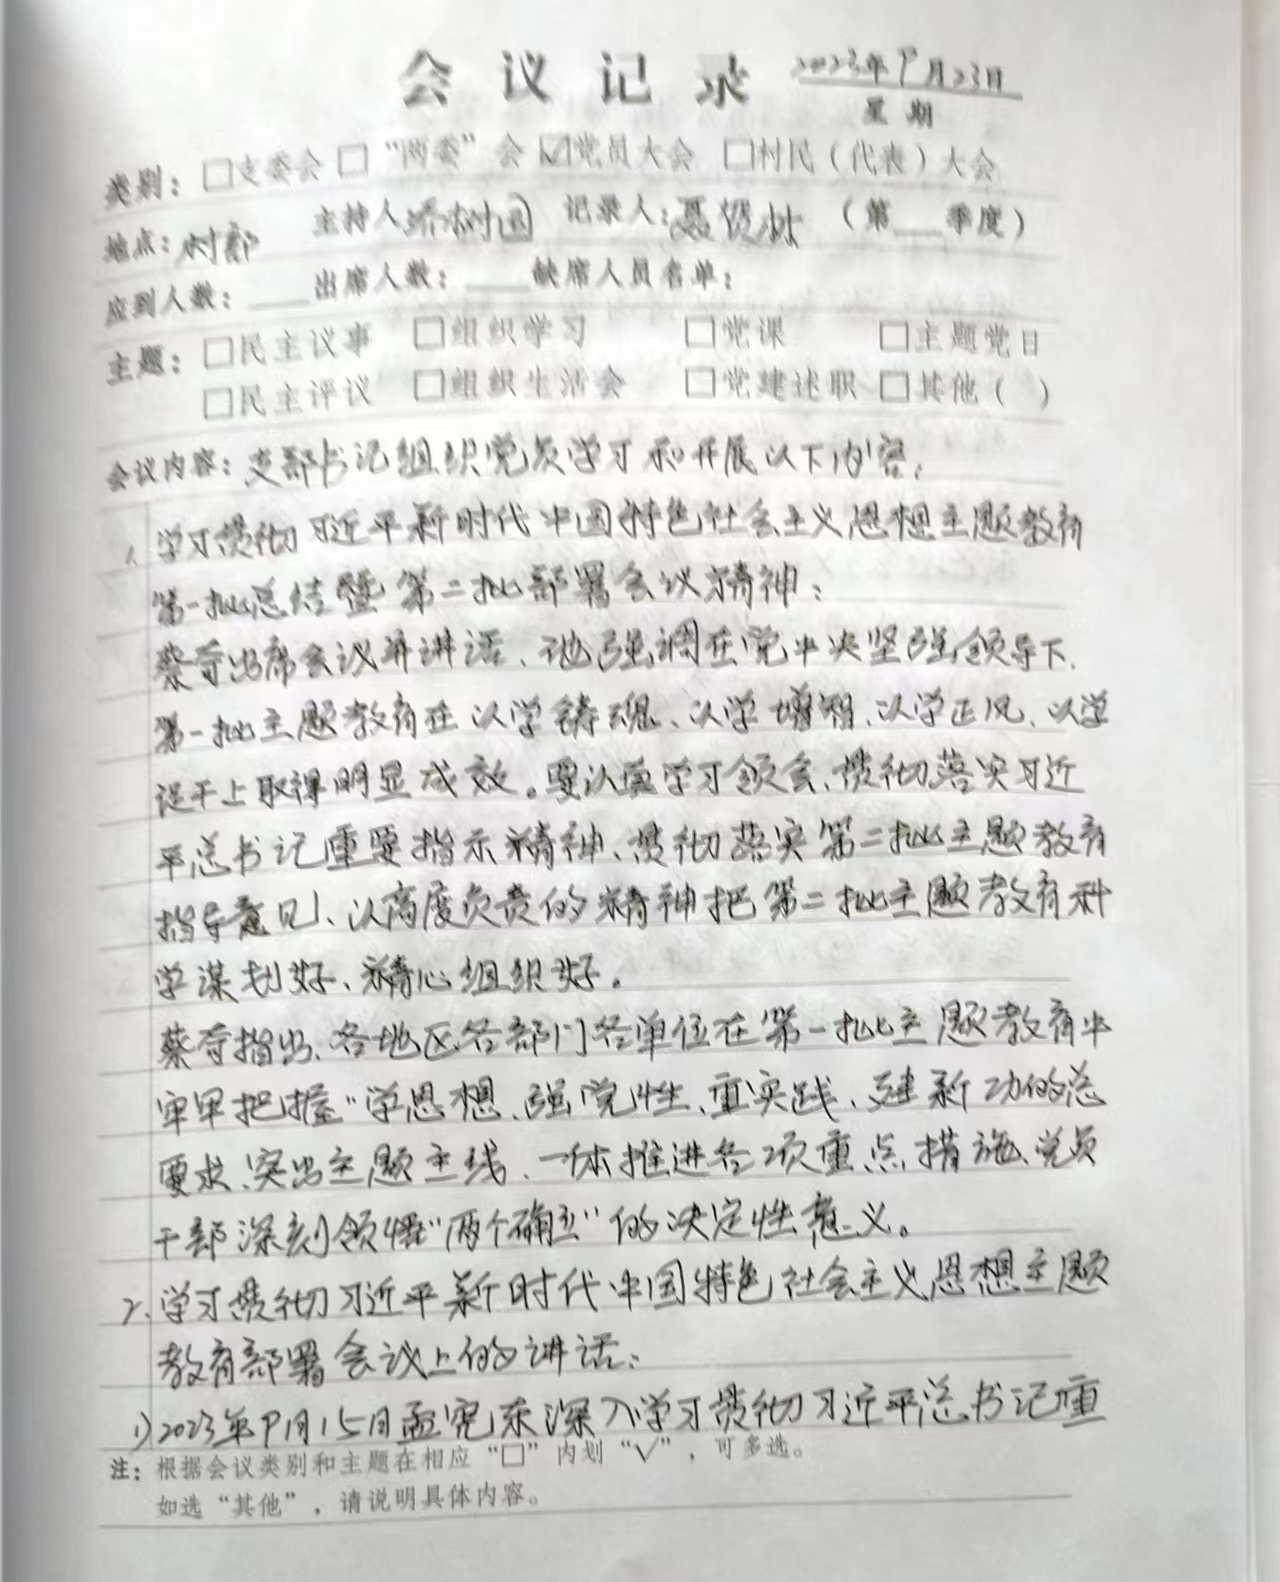 会议记录 2023年9月23日
星期
类别：□支委会 □“两委”会 ☑党员大会 □村民（代表）大会
地点：村部 主持人 树国 记录人：聂贤林 （第___季度）
应到人数：____出席人数：____缺席人员名单：
主题：□民主议事 □组织学习 □党课 □主题党日
□民主评议 □组织生活会 □党建述职 □其他（ ）
会议内容：支部书记组织党员学习和开展以下内容：
1、学习贯彻习近平新时代中国特色社会主义思想主题教育
第一批总结暨第二批部署会议精神：
蔡奇出席会议并讲话、他强调在党中央坚强领导下、
第一批主题教育在以学铸魂、以学增智、以学正风、以学
促干上取得明显成效。要认真学习领会、贯彻落实习近
平总书记重要指示精神、贯彻落实第二批主题教育
指导意见、以高度负责的精神把第二批主题教育科
学谋划好、精心组织好。
蔡奇指出、各地区各部门各单位在第一批主题教育中
牢牢把握“学思想、强党性、重实践、建新功的总
要求、突出主题主线、一体推进各项重点措施、党员
干部深刻领悟“两个确立”的决定性意义。
2、学习贯彻习近平新时代中国特色社会主义思想主题
教育部署会议上的讲话：
1)2023年9月15日孟宪东深入学习贯彻习近平总书记重
注：根据会议类别和主题在相应“□”内划“√”，可多选。
如选“其他”，请说明具体内容。